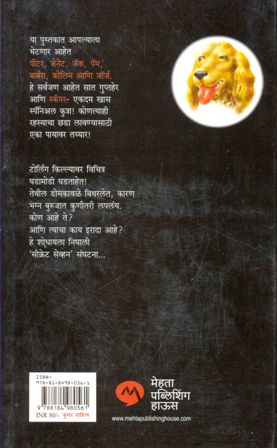 या पुस्तकात आपल्याला
भेटणार आहेत
पीटर, जॅनेट, जॅक, पॅम,
बार्बरा, कोलिन आणि जॉर्ज.
हे सर्वजण आहेत सात गुप्तहेर
आणि स्कॅंपर- एकदम खास
स्पॅनिअल कुत्रा! कोणत्याही
रहस्याचा छडा लावण्यासाठी
एका पायावर तय्यार!
टोर्लिंग किल्ल्यावर विचित्र
घडामोडी घडताहेत!
तेथील डोमकावळे बिथरलेत, कारण
भग्न बुरुजात कुणीतरी लपलंय.
कोण आहे ते?
आणि त्याचा काय इरादा आहे?
हे शोधायला निघाली
'सीक्रेट सेव्हन' संघटना...
ISBN-
978-81-8498-056-1
9 788184 980561
INR 80/- कुमार साहित्य
मेहता
पब्लिशिंग
हाऊस
www.mehtapublishinghouse.com